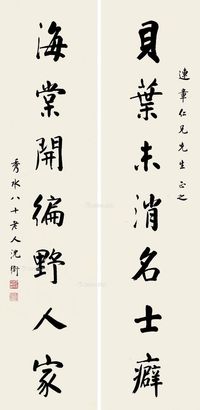 貝葉未消名士癖
連章仁兄先生正之
海棠開編野人家
秀水八十老人沈衛